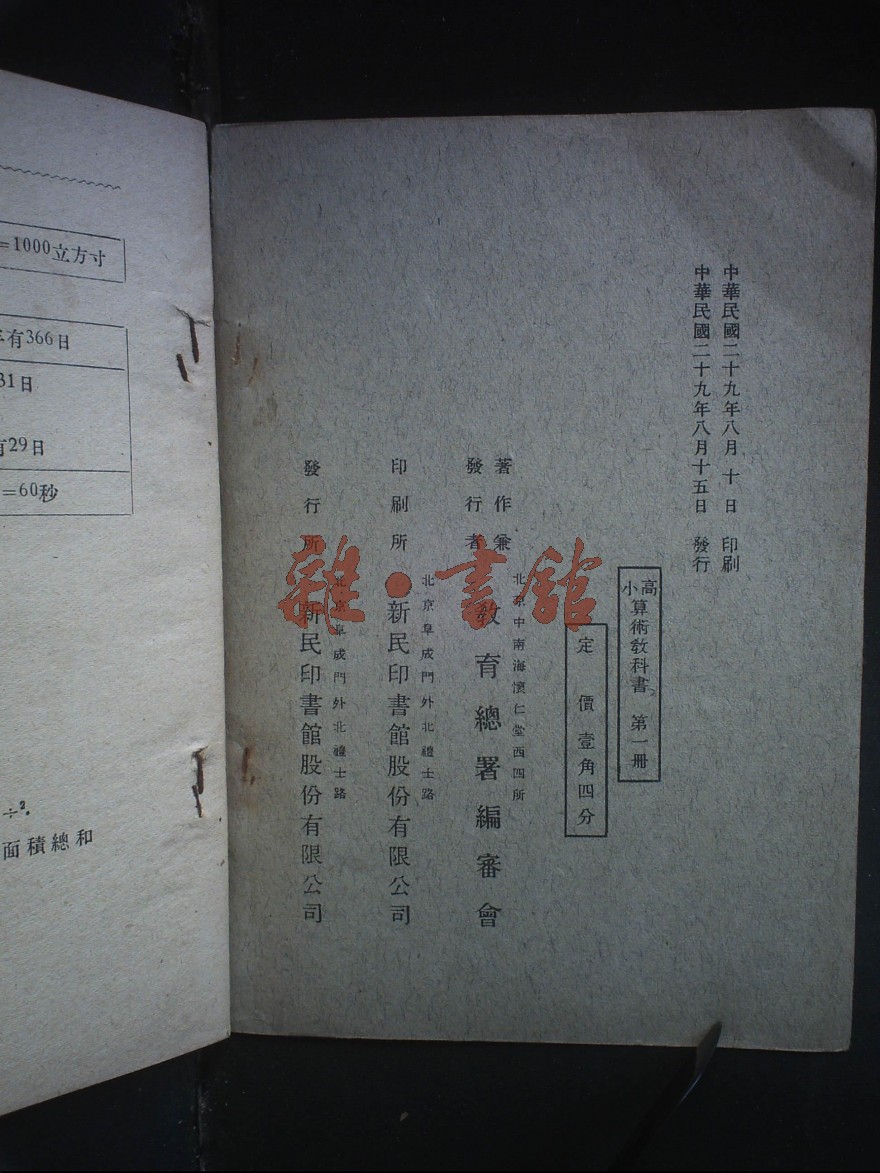 中華民國二十九年八月十日 印刷
中華民國二十九年八月十五日 發行
高小算術教科書 第一冊
定價壹角四分
北京中南海懷仁堂西四所
著作兼發行者 教育總署編審會
北京阜成門外北禮士路
印刷所 新民印書館股份有限公司
北京阜成門外北禮士路
發行所 新民印書館股份有限公司
雜·書館
=1000立方寸
有366日
31日
有29日
=60秒
÷2.
面積總和